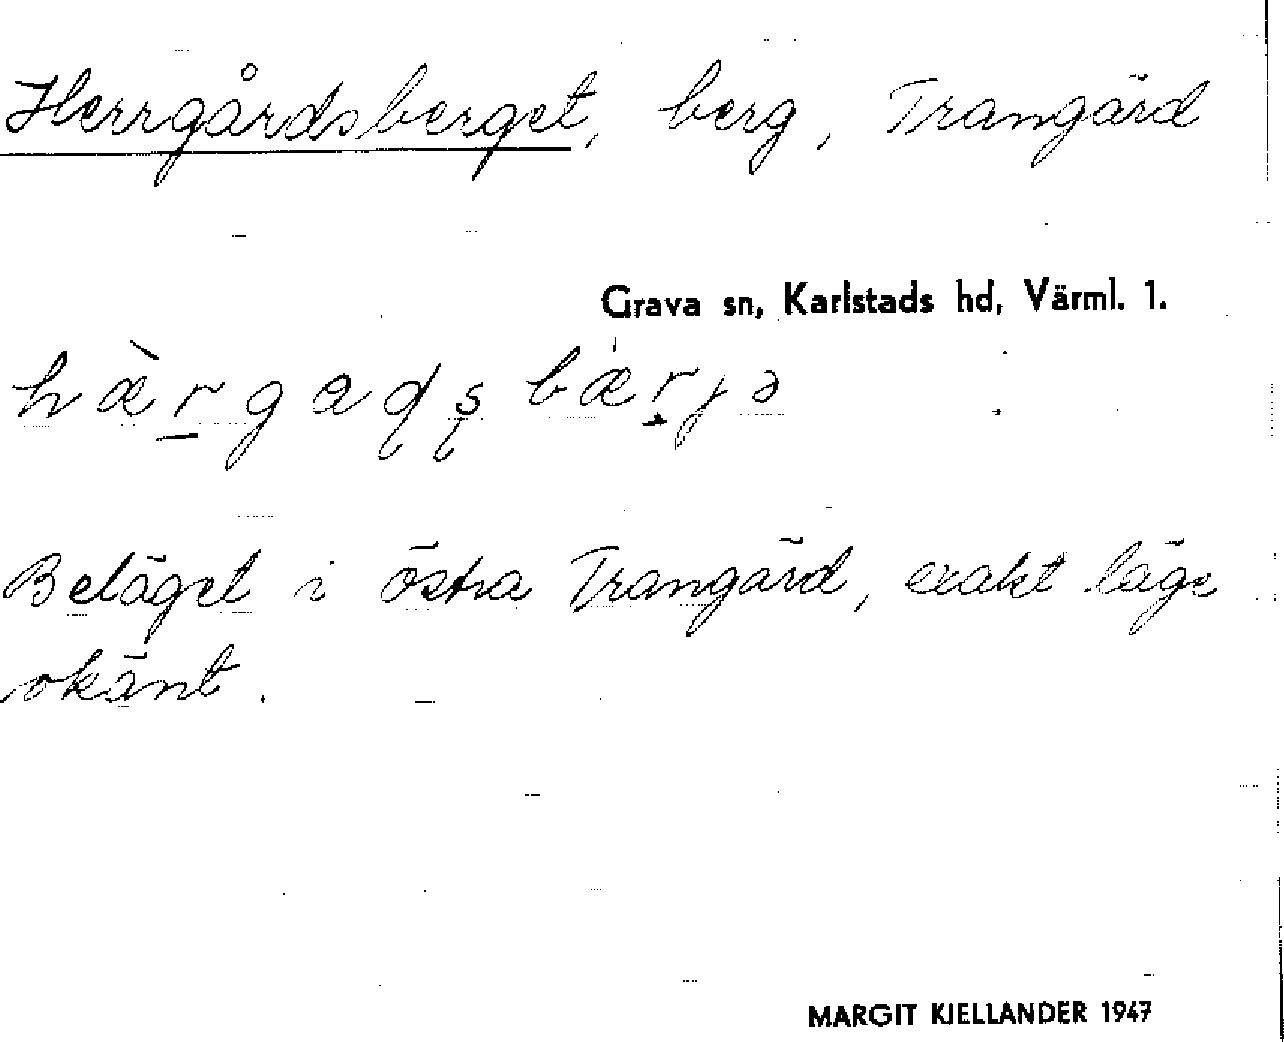 Herrgårdsberget, berg, Trangärd
Grava sn, Karlstads hd, Värml. 1.
hæ̀rgaɖʂbærjə
Beläget i östra Trangärd, exakt läge
okänt.
MARGIT KJELLANDER 1947